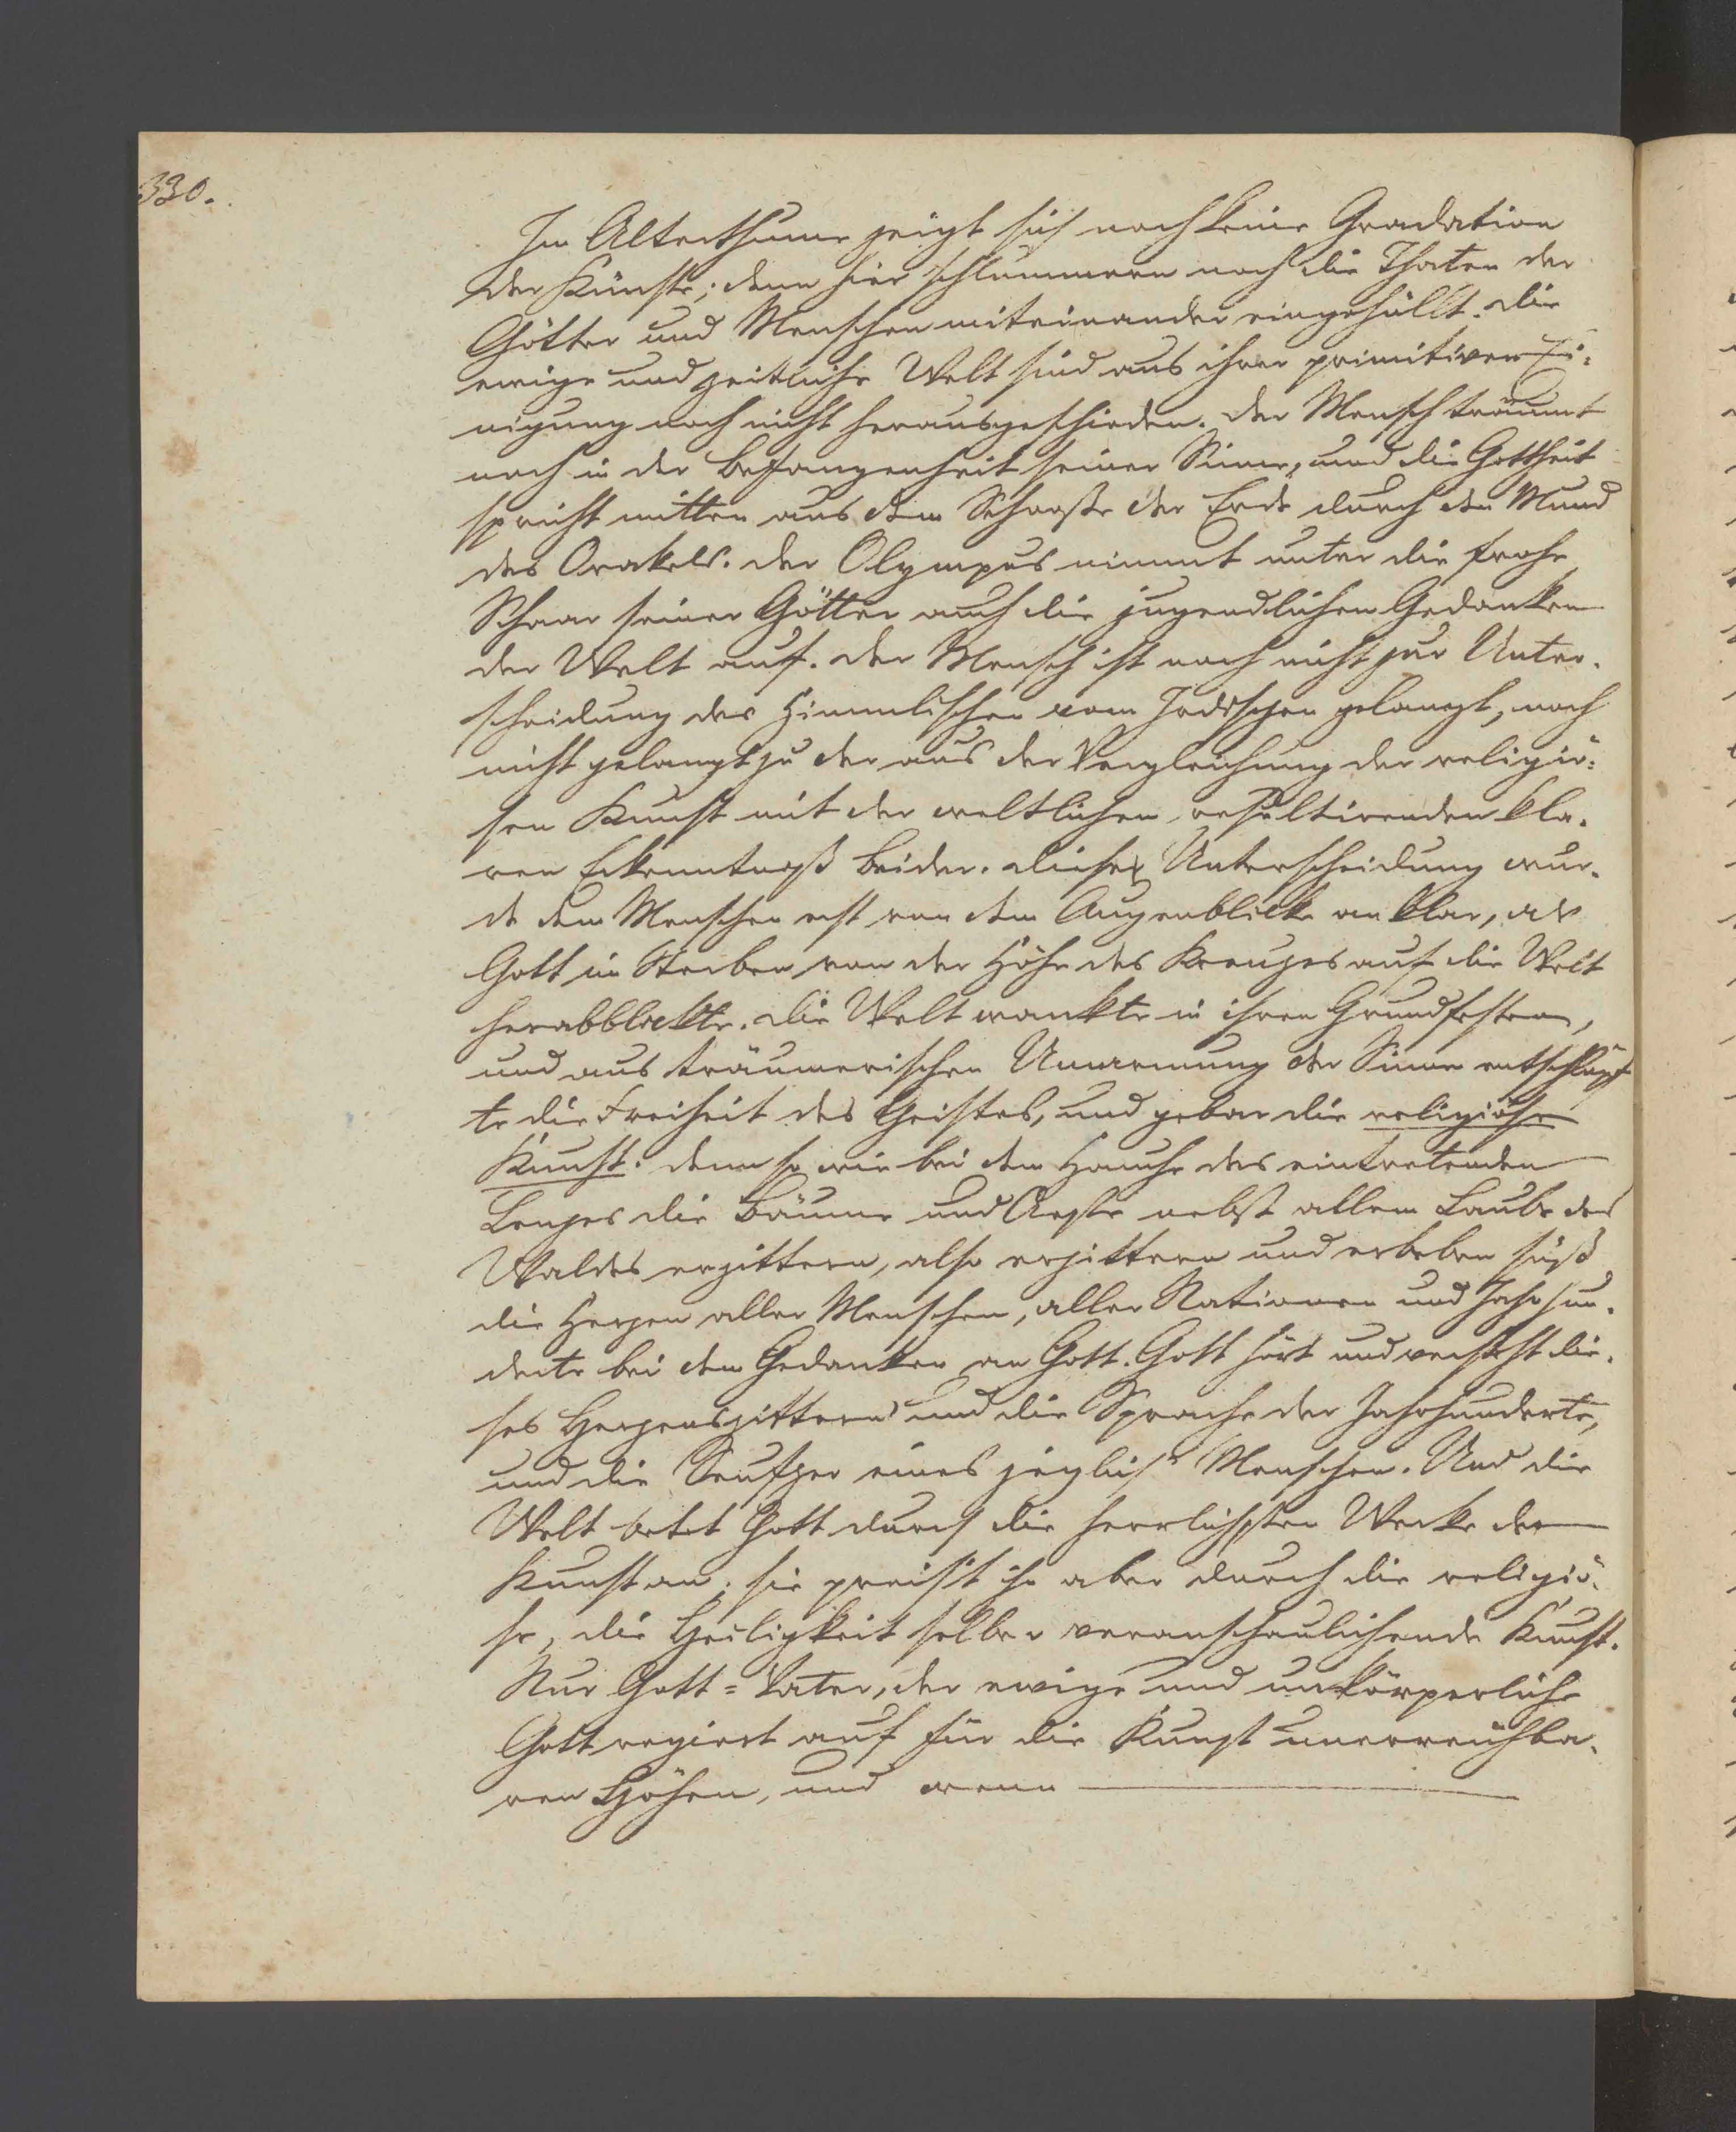 330.
Im Alterthume zeigt sich noch keine Gradation
der Künste; denn hier schlummern noch die Thaten der
Götter und Menschen miteinander eingehüllt. Die
ewige und zeitliche Welt sind aus ihrer primitiven Ei-
nigung noch nicht herausgeschieden. Der Mensch träumt
noch in der Befangenheit seiner Sinne, und die Gottheit
spricht mitten aus dem Schooße der Erde durch den Mund
des Orakels. Der Olympus nimmt unter die frohe
Schaar seiner Götter auch die jugendlichen Gedanken
der Welt auf. Der Mensch ist noch nicht zur Unter-
scheidung des Himmlischen vom Irdischen gelangt, noch
nicht gelangt zu der aus der Vergleichung der religiö-
sen Kunst mit der weltlichen, resultirenden kla-
ren Erkenntniß beider. Diese Unterscheidung wur-
de dem Menschen erst von dem Augenblicke an klar, als
Gott im Sterben von der Höhe des Kreuzes auf die Welt
herabblickte. Die Welt wankte in ihren Grundfesten,
und aus träumerischen Umarmung der Sinne entschlüpf-
te die Freiheit des Geistes, und gebar die religiöse
Kunst. Denn so wie bei dem Hauche des eintretenden
Lenzes die Bäume und Aeste nebst allem Laube des
Waldes erzittern, also erzittern und erbeben süß
die Herzen aller Menschen, aller Nationen und Jahrhun-
derte bei dem Gedanken an Gott. Gott hört und versteht die-
ses Herzenszittern und die Sprache der Jahrhunderte,
und die Seufzer eines jeglich Menschen. Und die
Welt betet Gott durch die herrlichsten Werke der
Kunst an; sie preist ihn aber durch die religiö-
se, die Heiligkeit selber veranschaulichende Kunst.
Nur Gott=Vater, der ewige und unkörperliche
Gott regiert auf für die Kunst unerreichba-
ren Höhen, und wenn